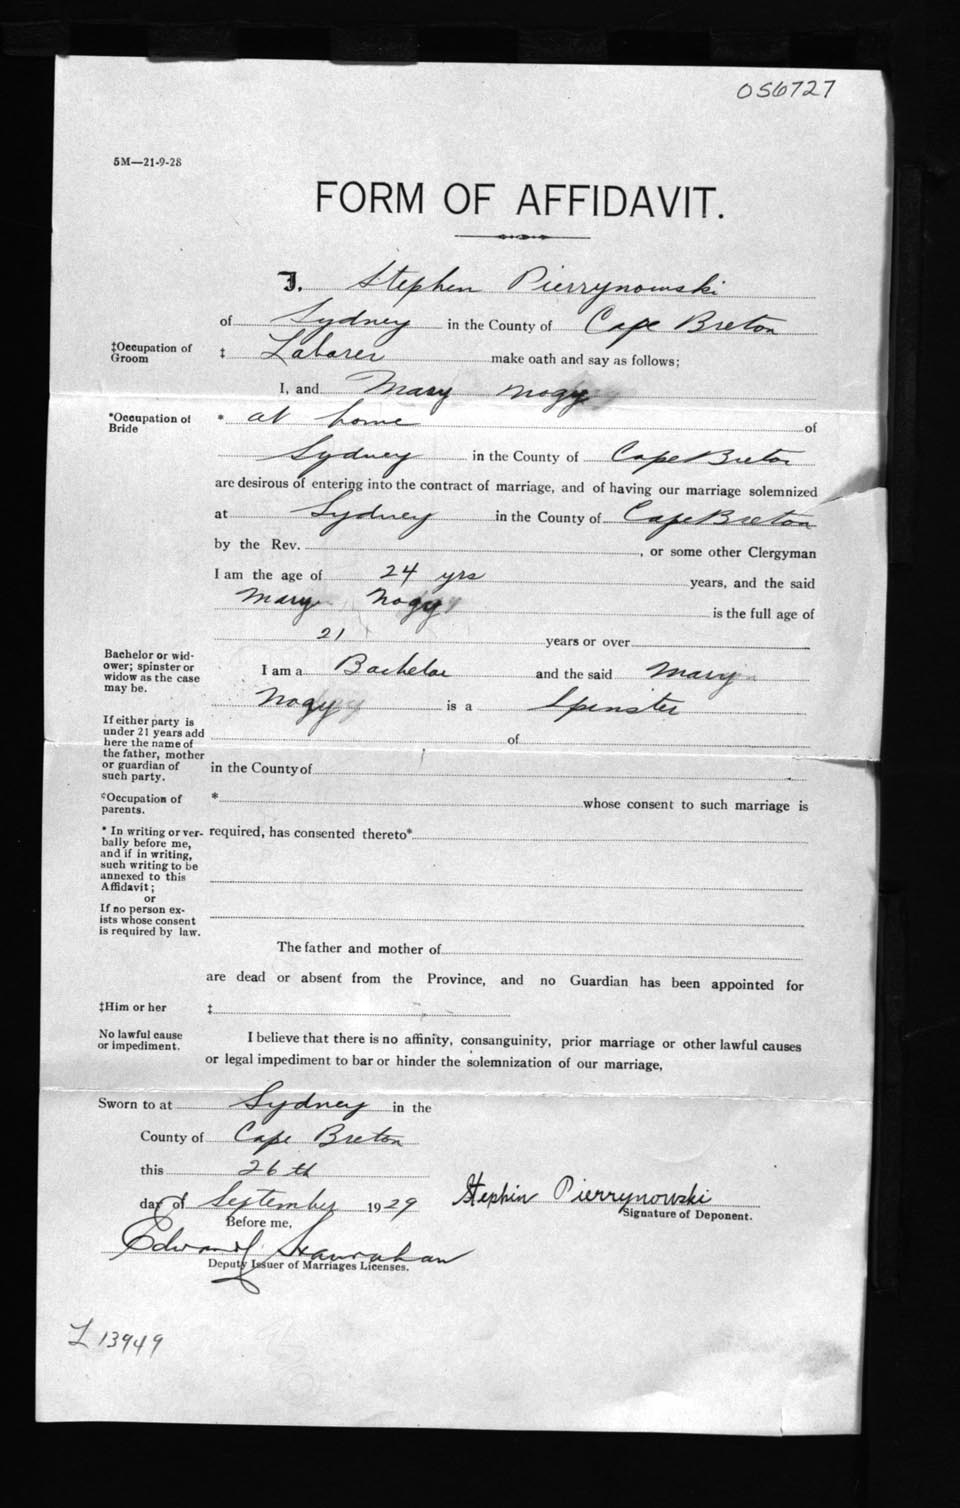 056727
5M—21-9-28
FORM OF AFFIDAVIT.
I. Stephen Pierrynowski
of Sydney in the County of Cape Breton
‡Occupation of Groom ‡ Laborer make oath and say as follows;
I, and Mary Nogy
*Occupation of Bride * at home of
Sydney in the County of Cape Breton
are desirous of entering into the contract of marriage, and of having our marriage solemnized
at Sydney in the County of Cape Breton
by the Rev. , or some other Clergyman
I am the age of 24 yrs years, and the said
Mary Nogy is the full age of
21 years or over
Bachelor or widower; spinster or widow as the case may be. I am a Bachelor and the said Mary
Nogy is a Spinster
If either party is under 21 years add here the name of the father, mother or guardian of such party. of
in the County of
*Occupation of parents. * whose consent to such marriage is
* In writing or verbally before me, and if in writing, such writing to be annexed to this Affidavit; required, has consented thereto*
or
If no person exists whose consent is required by law.
The father and mother of
are dead or absent from the Province, and no Guardian has been appointed for
‡Him or her ‡
No lawful cause or impediment. I believe that there is no affinity, consanguinity, prior marriage or other lawful causes
or legal impediment to bar or hinder the solemnization of our marriage,
Sworn to at Sydney in the
County of Cape Breton
this 26th
day of September 1929 Stephin Pierrynowski
Before me, Signature of Deponent.
Edward Hanrahan
Deputy Issuer of Marriages Licenses.
L 13949